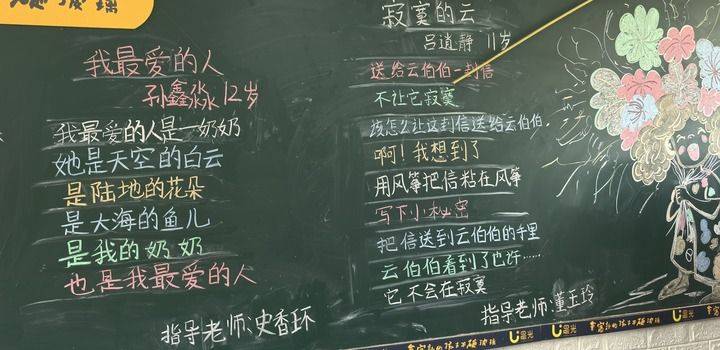 我最爱的人
孙鑫淼 12岁
我最爱的人是一奶奶
她是天空的白云
是陆地的花朵
是大海的鱼儿
是我的奶奶
也是我最爱的人
指导老师:史香环
寂寞的云
吕逍静 11岁
送给云伯伯一封信
不让它寂寞
该怎么让这封信送给云伯伯,
啊!我想到了
用风筝把信粘在风筝
写下小秘密
把信送到云伯伯的手里
云伯伯看到了也许……
它不会在寂寞
指导老师:董玉玲